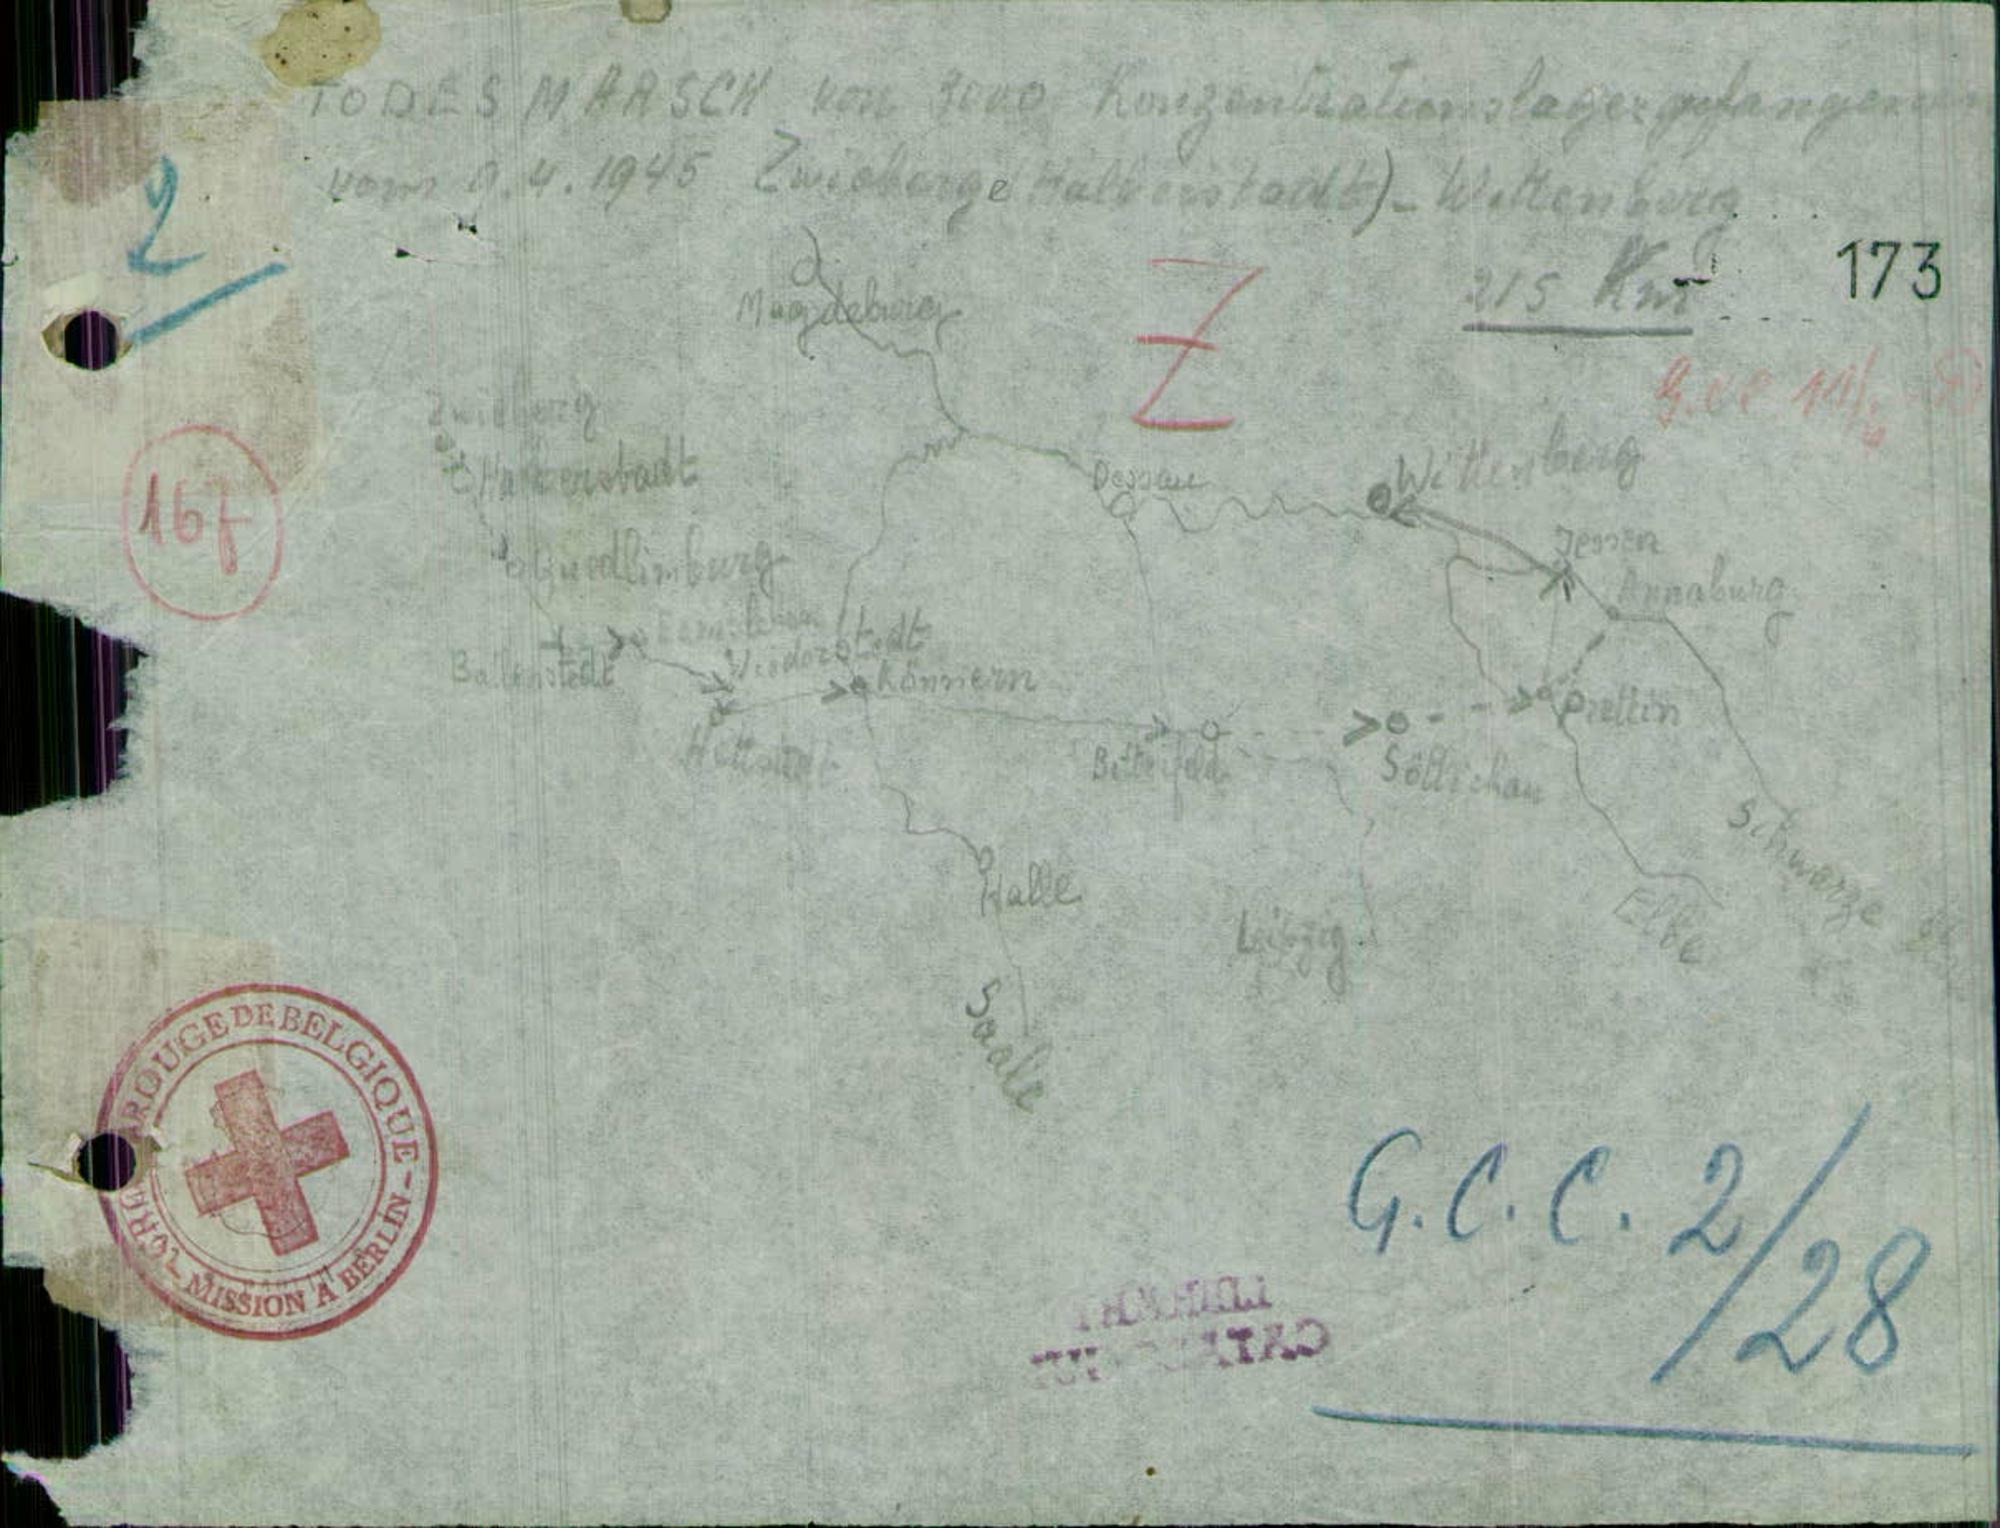 TODESMARSCH von 3000 Konzentrationslagergefangenen
vom 9.4.1945 Zwieberge (Halberstadt) - Wittenberg
215 Km
173
2
Z
G.C.C. 11/
Magdeburg
Zwieberg
Halberstadt
16f
Dessau
Wittenberg
Quedlimburg
Jessen
Annaburg
Ballenstedt
Wiederstedt
Könnern
Prettin
Hettstedt
Bitterfeld
Söllichau
Schwarze
Halle
Elbe
Leipzig
Saale
ROUGE DE BELGIQUE - MISSION A BERLIN -
G.C.C. 2/28